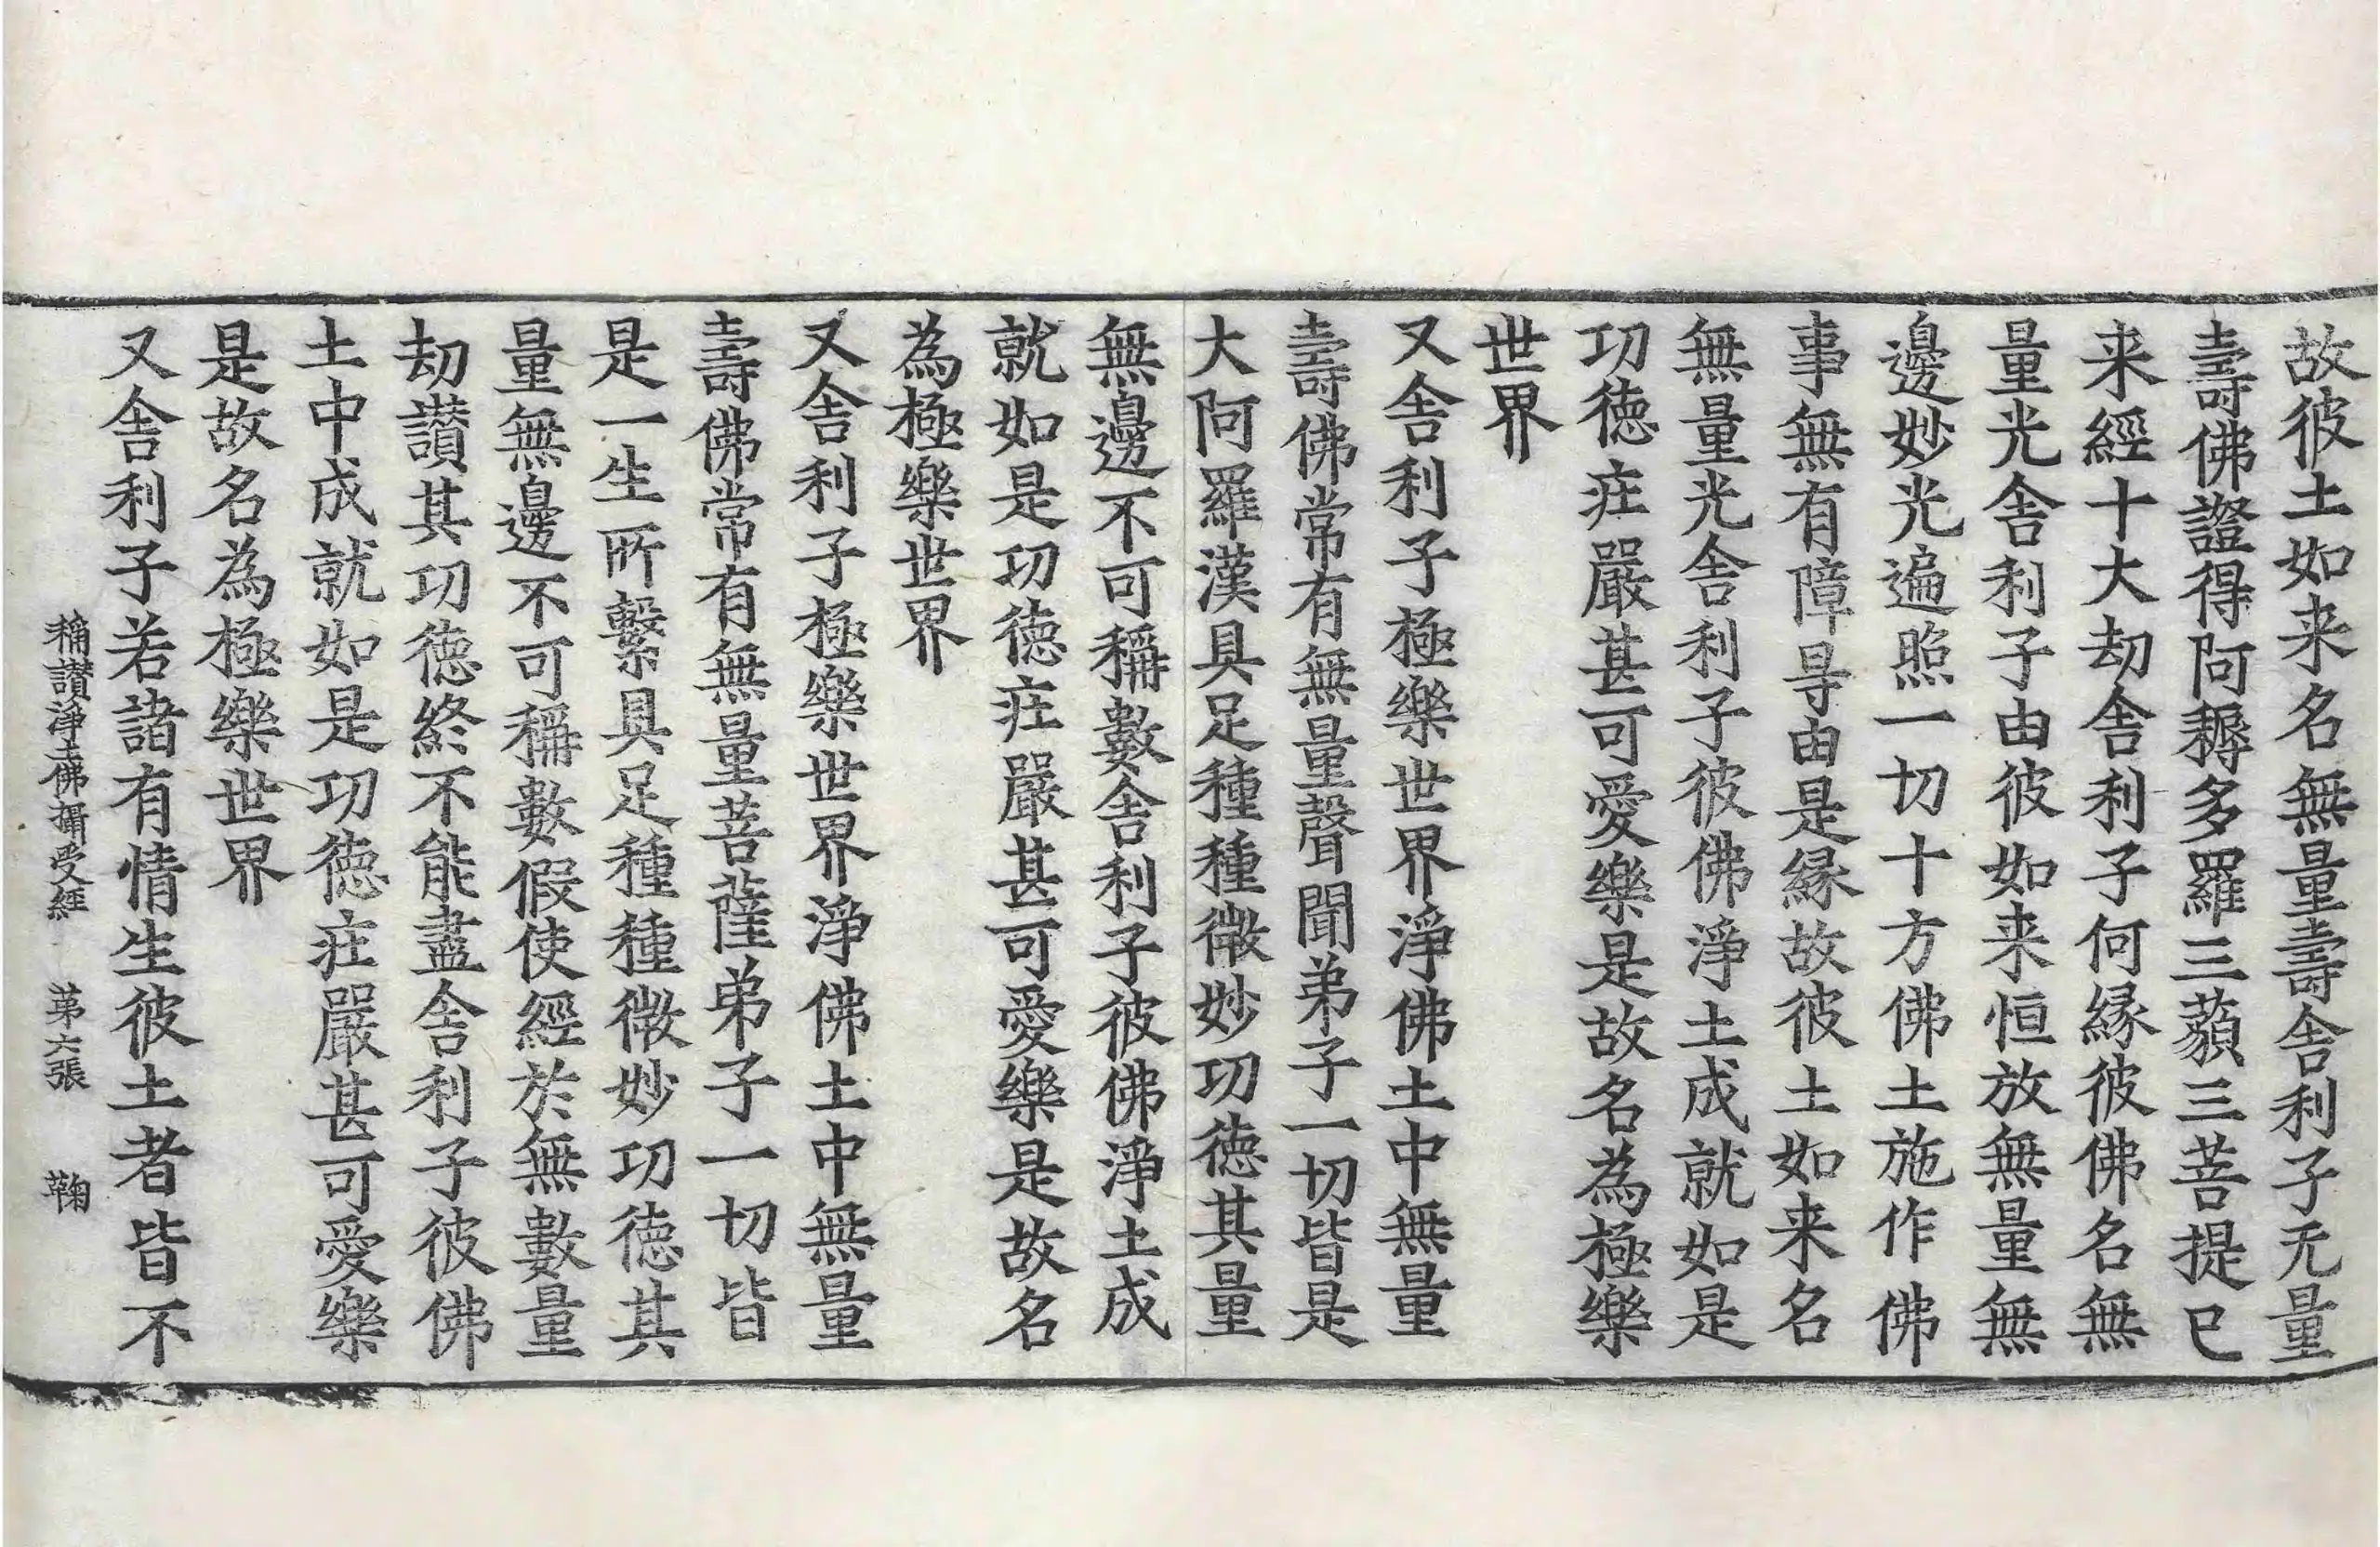 故彼土如来名無量壽舎利子无量
壽佛證得阿耨多羅三藐三菩提已
来經十大劫舎利子何縁彼佛名無
量光舎利子由彼如来恒放無量無
邊妙光遍照一切十方佛土施作佛
事無有障㝵由是縁故彼土如来名
無量光舎利子彼佛淨土成就如是
功徳疘嚴甚可愛樂是故名為極樂
世界
又舎利子極樂世界淨佛土中無量
壽佛常有無量聲聞弟子一切皆是
大阿羅漢具足種種微妙功徳其量
無邊不可稱數舎利子彼佛淨土成
就如是功徳疘嚴甚可愛樂是故名
為極樂世界
又舎利子極樂世界淨佛土中無量
壽佛常有無量菩薩弟子一切皆
是一生所繫具足種種微妙功徳其
量無邊不可稱數假使經於無數量
劫讃其功徳終不能盡舎利子彼佛
土中成就如是功徳疘嚴甚可愛樂
是故名為極樂世界
又舎利子若諸有情生彼土者皆不
稱讃淨土佛攝受經 第六張 鞠